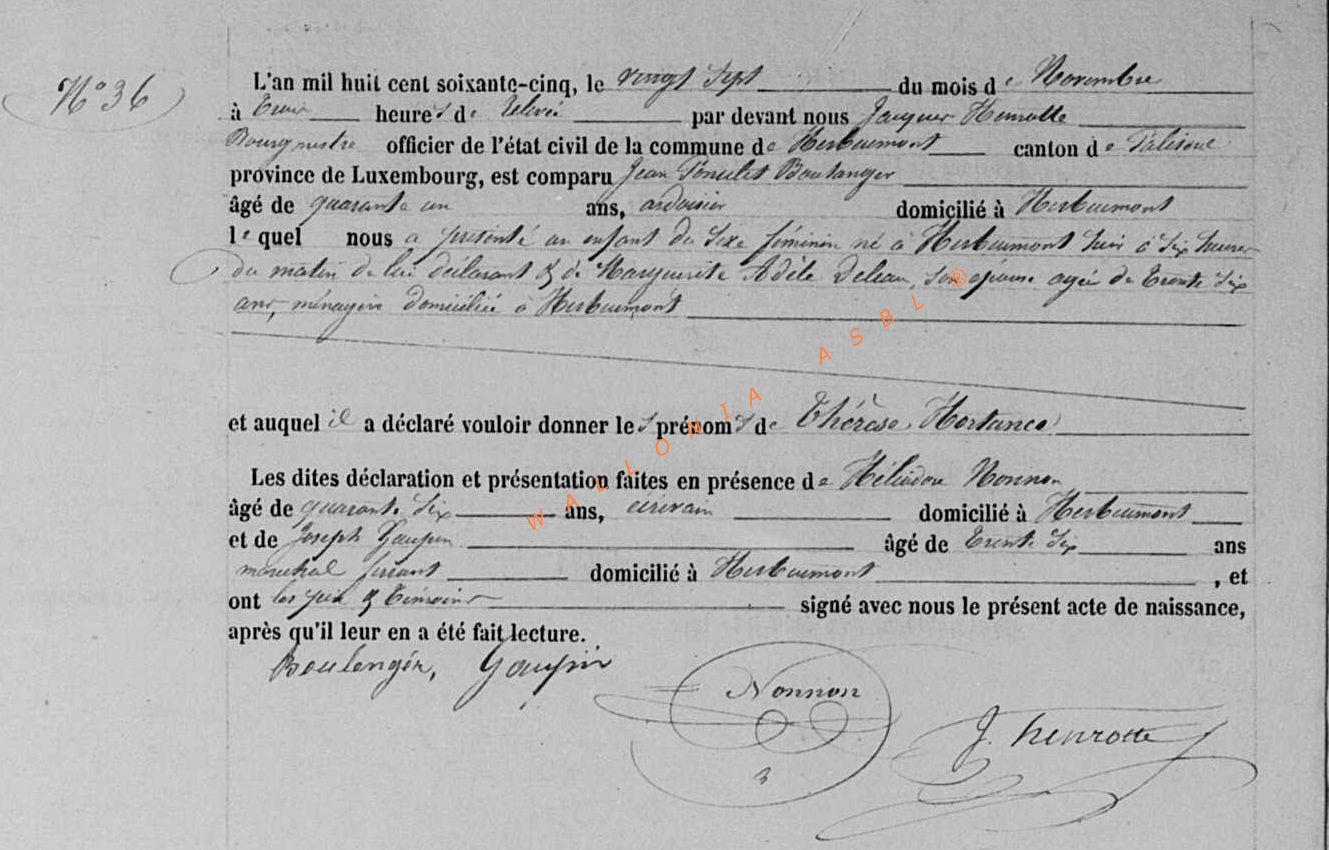 N° 36
L'an mil huit cent soixante-cinq, le vingt sept du mois de Novembre
à trois heures de relevée par devant nous Jacques Henrotte
Bourgmestre officier de l'état civil de la commune de Herbeumont canton de Paliseul
province de Luxembourg, est comparu Jean Boulanger
âgé de quarante un ans, ardoisier domicilié à Herbeumont
lequel nous a présenté un enfant du sexe féminin né à Herbeumont hier à six heures
du matin de lui déclarant & de Marguerite Adèle Deleau, son épouse agée de trente six
ans, ménagère domiciliée à Herbeumont
et auquel il a déclaré vouloir donner les prénoms de Thérèse Hortance
Les dites déclaration et présentation faites en présence de Héliodore Nonnon
âgé de quarante six ans, écrivain domicilié à Herbeumont
et de Joseph Gaupin âgé de trente six ans
maréchal ferrant domicilié à Herbeumont, et
ont les père & témoins signé avec nous le présent acte de naissance,
après qu'il leur en a été fait lecture.
Boulenger, Gaupin
Nonnon
J. henrotte
WALLONIA ASBL ®